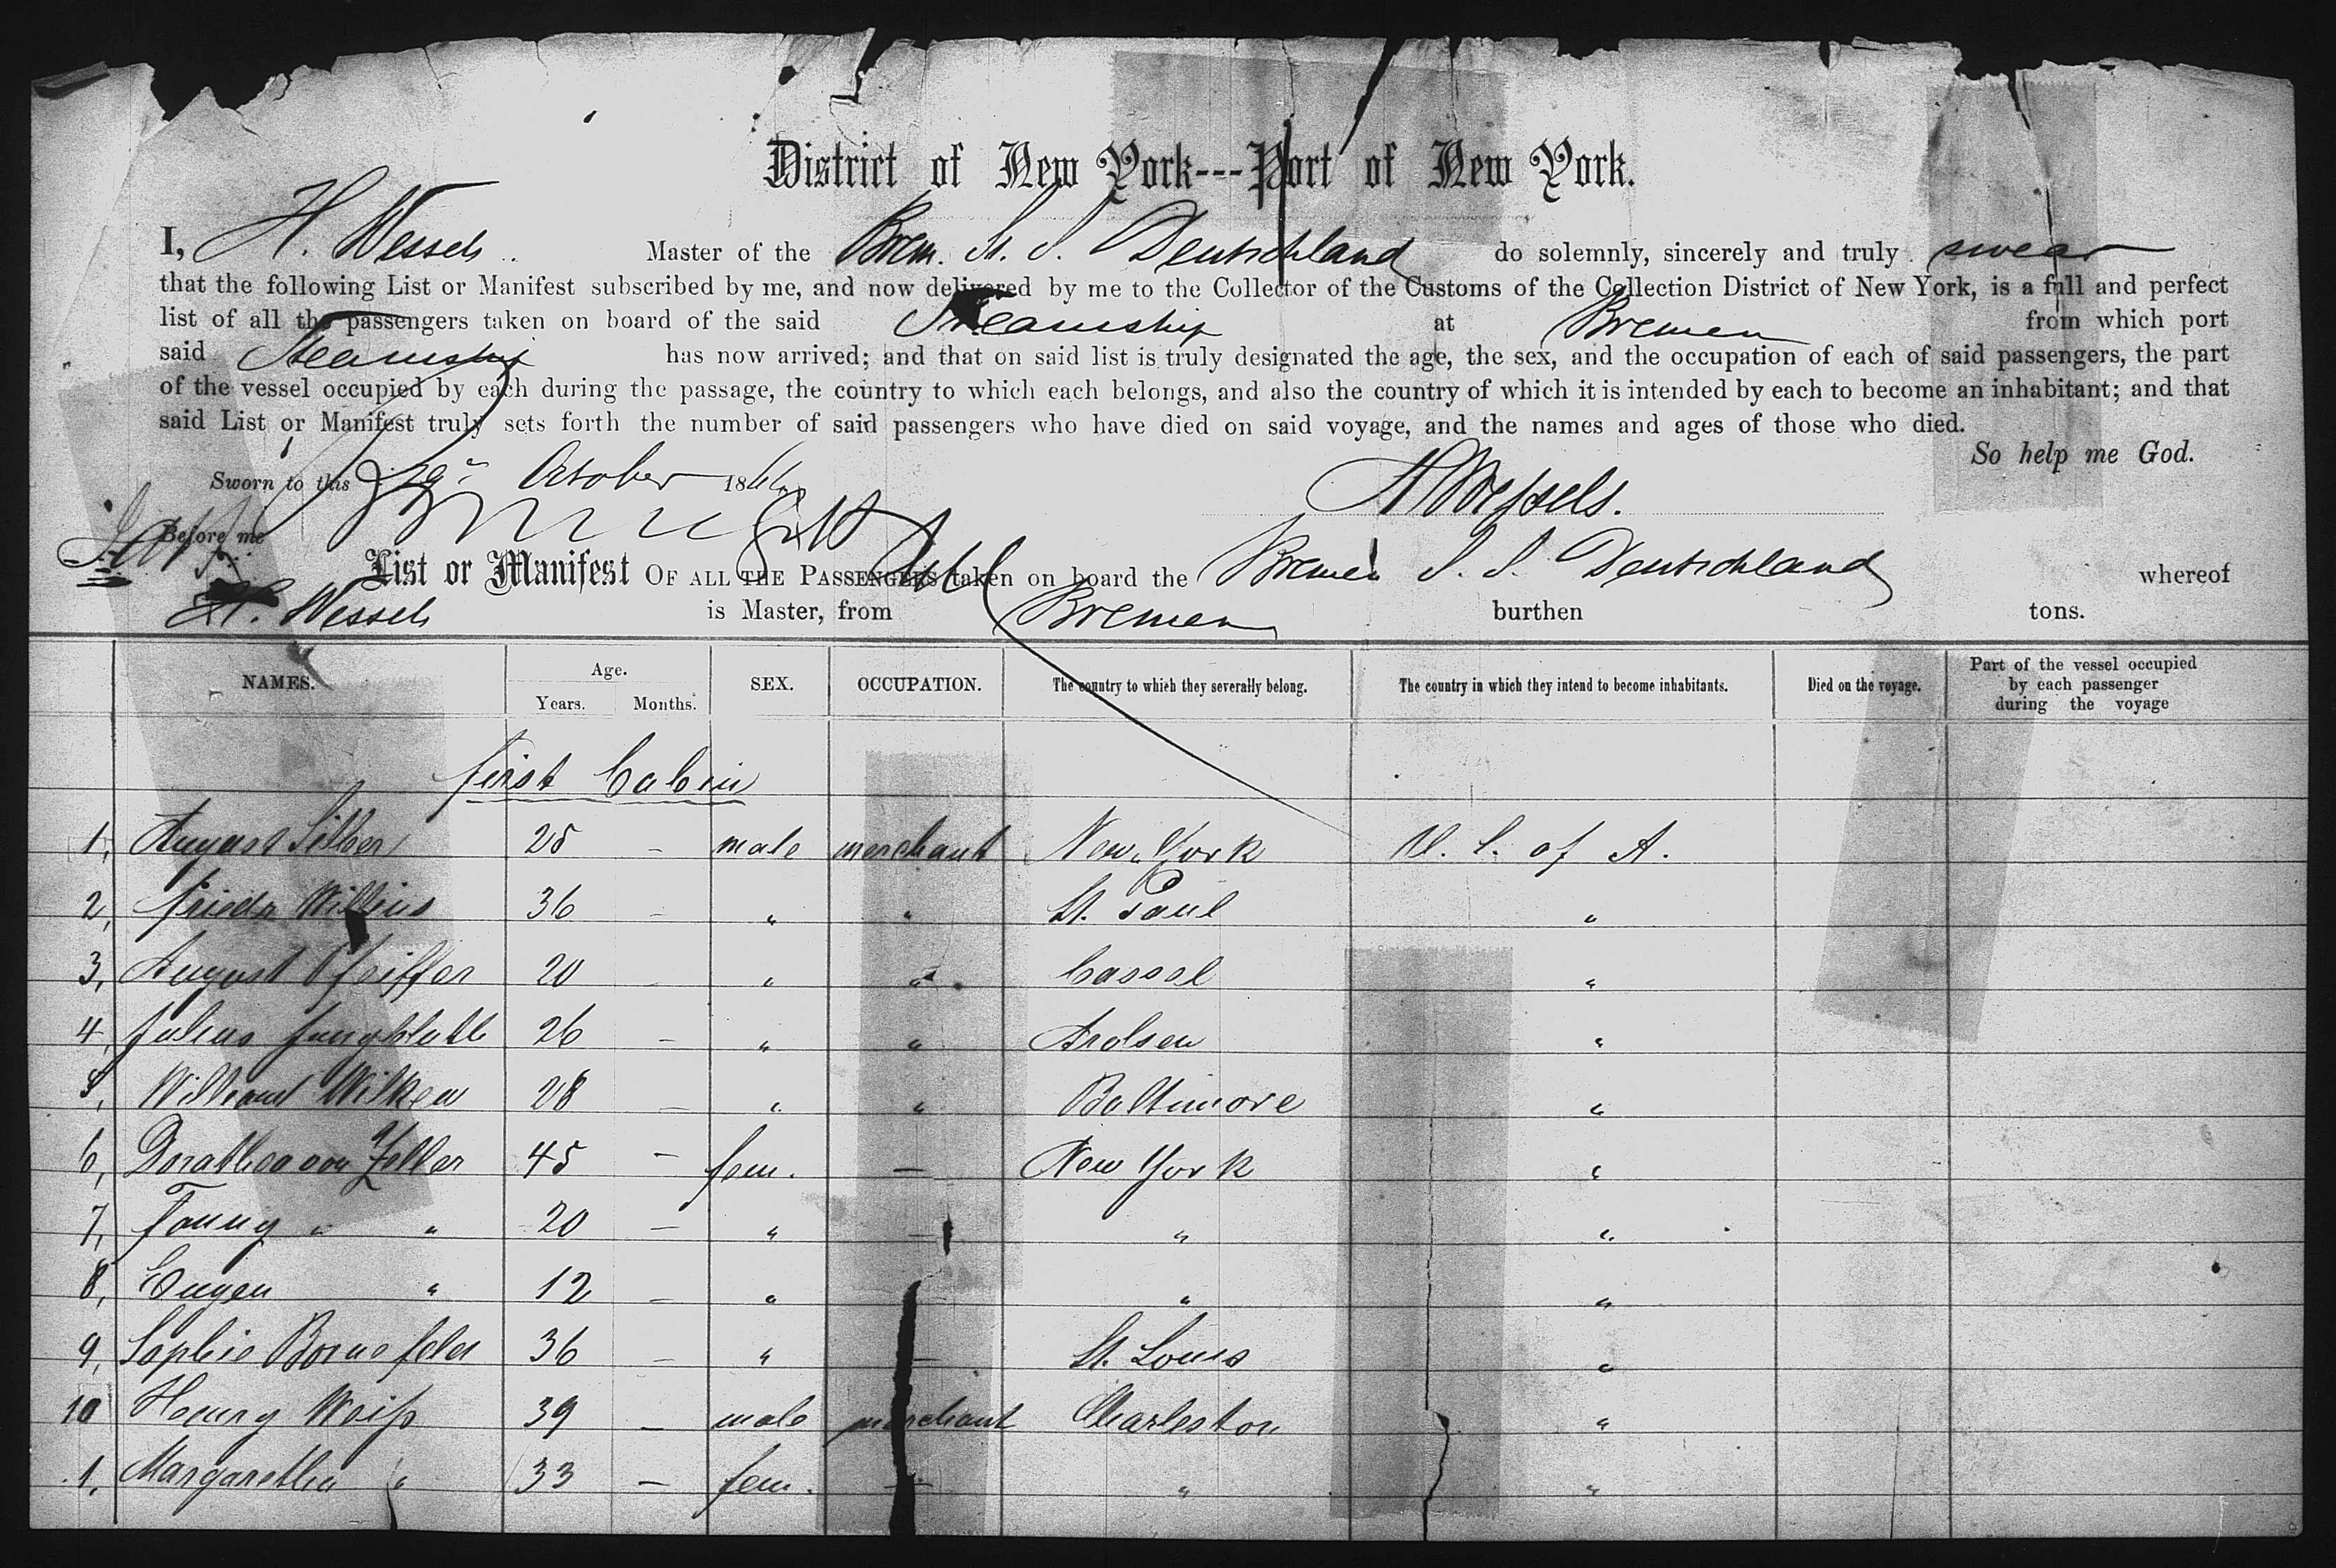 District of New York---Port of New York.
I, H. Wessels Master of the Brem. St. S. Deutschland do solemnly, sincerely and truly swear
that the following List or Manifest subscribed by me, and now delivered by me to the Collector of the Customs of the Collection District of New York, is a full and perfect
list of all the passengers taken on board of the said Steamship at Bremen from which port
said Steamship has now arrived; and that on said list is truly designated the age, the sex, and the occupation of each of said passengers, the part
of the vessel occupied by each during the passage, the country to which each belongs, and also the country of which it is intended by each to become an inhabitant; and that
said List or Manifest truly sets forth the number of said passengers who have died on said voyage, and the names and ages of those who died.
So help me God.
Sworn to this 29 October 186
H Wessels.
Before me
List or Manifest OF ALL THE PASSENGERS taken on board the Bremen S. S. Deutschland whereof
H. Wessels is Master, from Bremen burthen tons.
NAMES. Age. Years. Months. SEX. OCCUPATION. The country to which they severally belong. The country in which they intend to become inhabitants. Died on the voyage. Part of the vessel occupied by each passenger during the voyage
First Cabin
1, August 25 – male merchant New York U. S. of A.
2, Friedr 36 – " " St. Paul "
3, August Pfeiffer 20 – " " Cassel "
4, Julius Jungblutt 26 – " " Arolsen "
5, Wilken 28 – " " Baltimore "
6, Dorathea von Zeller 45 – fem. – New York "
7, Fanny " " 20 – " – " "
8, Eugen " 12 – " – " "
9, Sophie Bornefeld 36 – " – St. Louis "
10 Henry Weiss 39 – male merchant Charleston "
1, Margaretha " 33 – fem. – " "